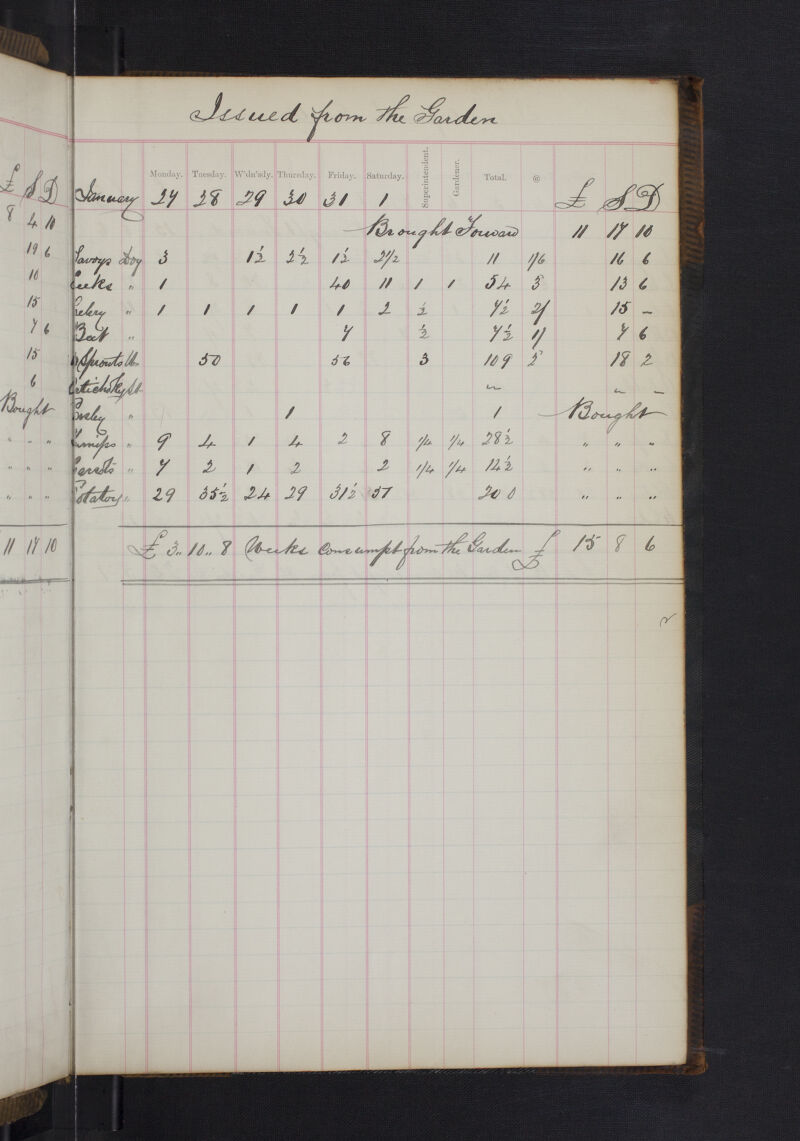 Issued from the Garden
Monday. Tuesday. W'dn'sdy. Thursday. Friday. Saturday. Superintendent. Gardener. Total. @
£ S D January 27 28 29 30 31 1 £ S D
8 4 10 Brought Forward 11 17 10
19 6 Savoys Doz 3 1½ 2½ 1½ 2½ 11 1/6 16 6
10 Leeks " 1 40 11 1 1 54 3 13 6
15 Celery " 1 1 1 1 1 2 ½ 7½ 2/ 15 –
7 6 Beet " 7 ½ 7½ 1/ 7 6
15 Sprouts lb 50 56 3 109 2 18 2
6 " " –
Bought Parsley " 1 1 Bought
" " " Turnips " 9 4 1 4 2 8 1/4 1/4 28½ " " "
" " " Carrots " 7 2 1 2 2 1/4 1/4 14½ " " "
" " " Potatoes " 29 35½ 24 29 31½ 51 200 " " "
11 17 10 £3 .. 10 .. 8 Weeks consumpt from the Garden £ 15 8 6